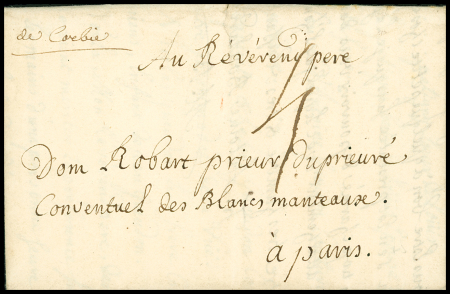 de Corbie
Au Révérend pere
4
Dom Robart prieur du prieuré
Conventuel des Blancs manteaux.
à paris.